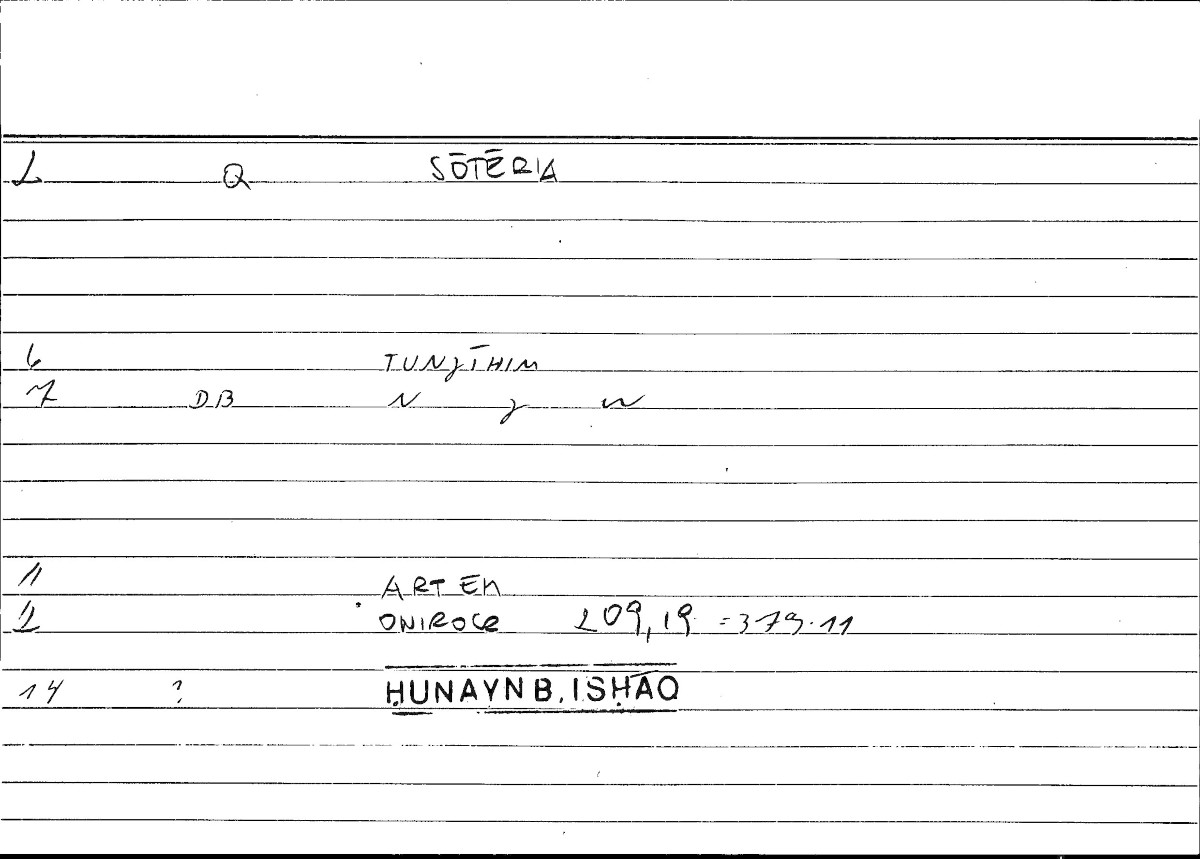 2 Q SŌTĒRIA
6 TUNJĪHIM
7 DB N J W
11 ARTEM
2 ONIROCR 209,19 = 379.11
14 ? ḤUNAYN B. ISḤĀQ